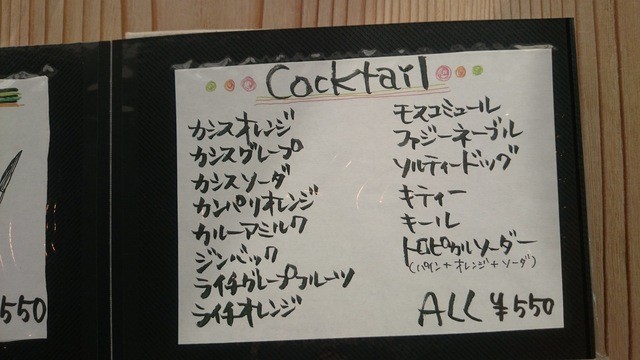 Cocktail
カシスオレンジ
カシスグレープ
カシスソーダ
カンパリオレンジ
カルーアミルク
ジンバック
ライチグレープフルーツ
ライチオレンジ
モスコミュール
ファジーネーブル
ソルティードッグ
キティー
キール
トロピカルソーダー
(パイン+オレンジ+ソーダ)
ALL ¥550
550